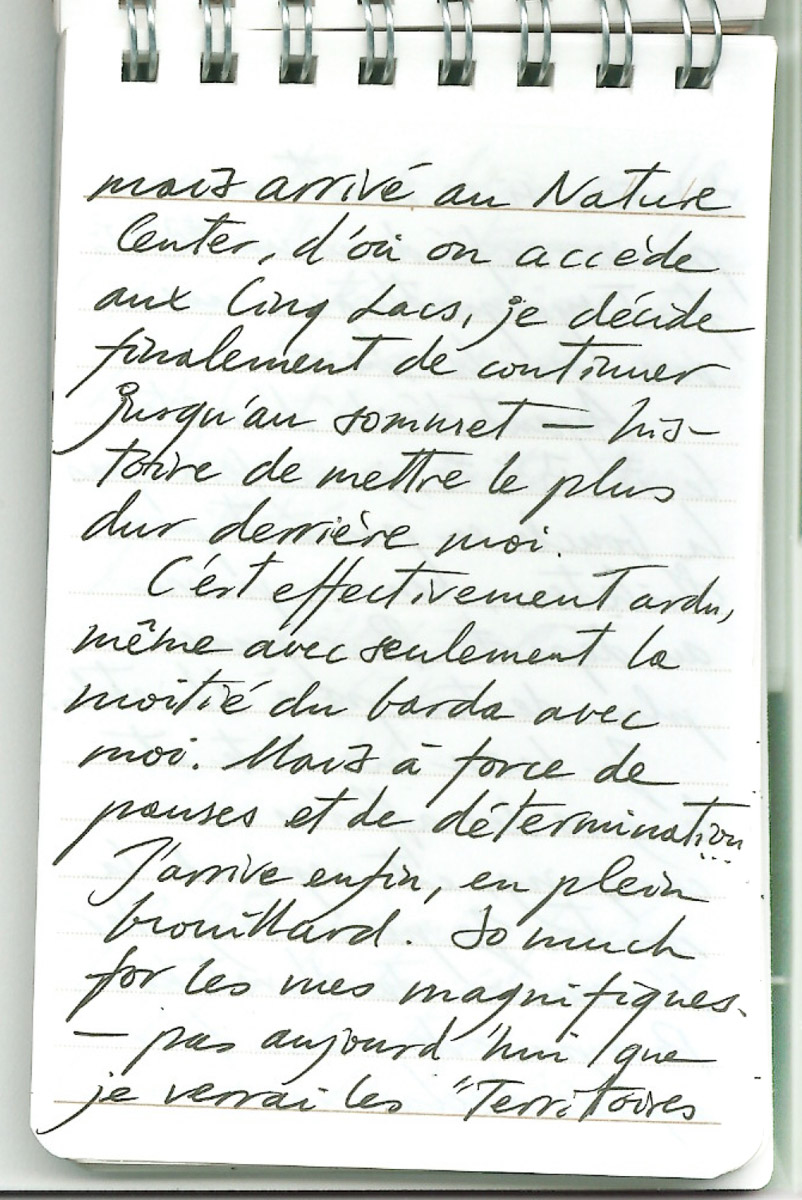 mais arrivé au Nature
Center, d'où on accède
aux Cinq Lacs, je décide
finalement de continuer
jusqu'au sommet — his-
toire de mettre le plus
dur derrière moi.
C'est effectivement ardu,
même avec seulement la
moitié du barda avec
moi. Mais à force de
pauses et de détermination...
J'arrive enfin, en plein
brouillard. So much
for les vues magnifiques.
— pas aujourd'hui que
je verrai les "Territoires